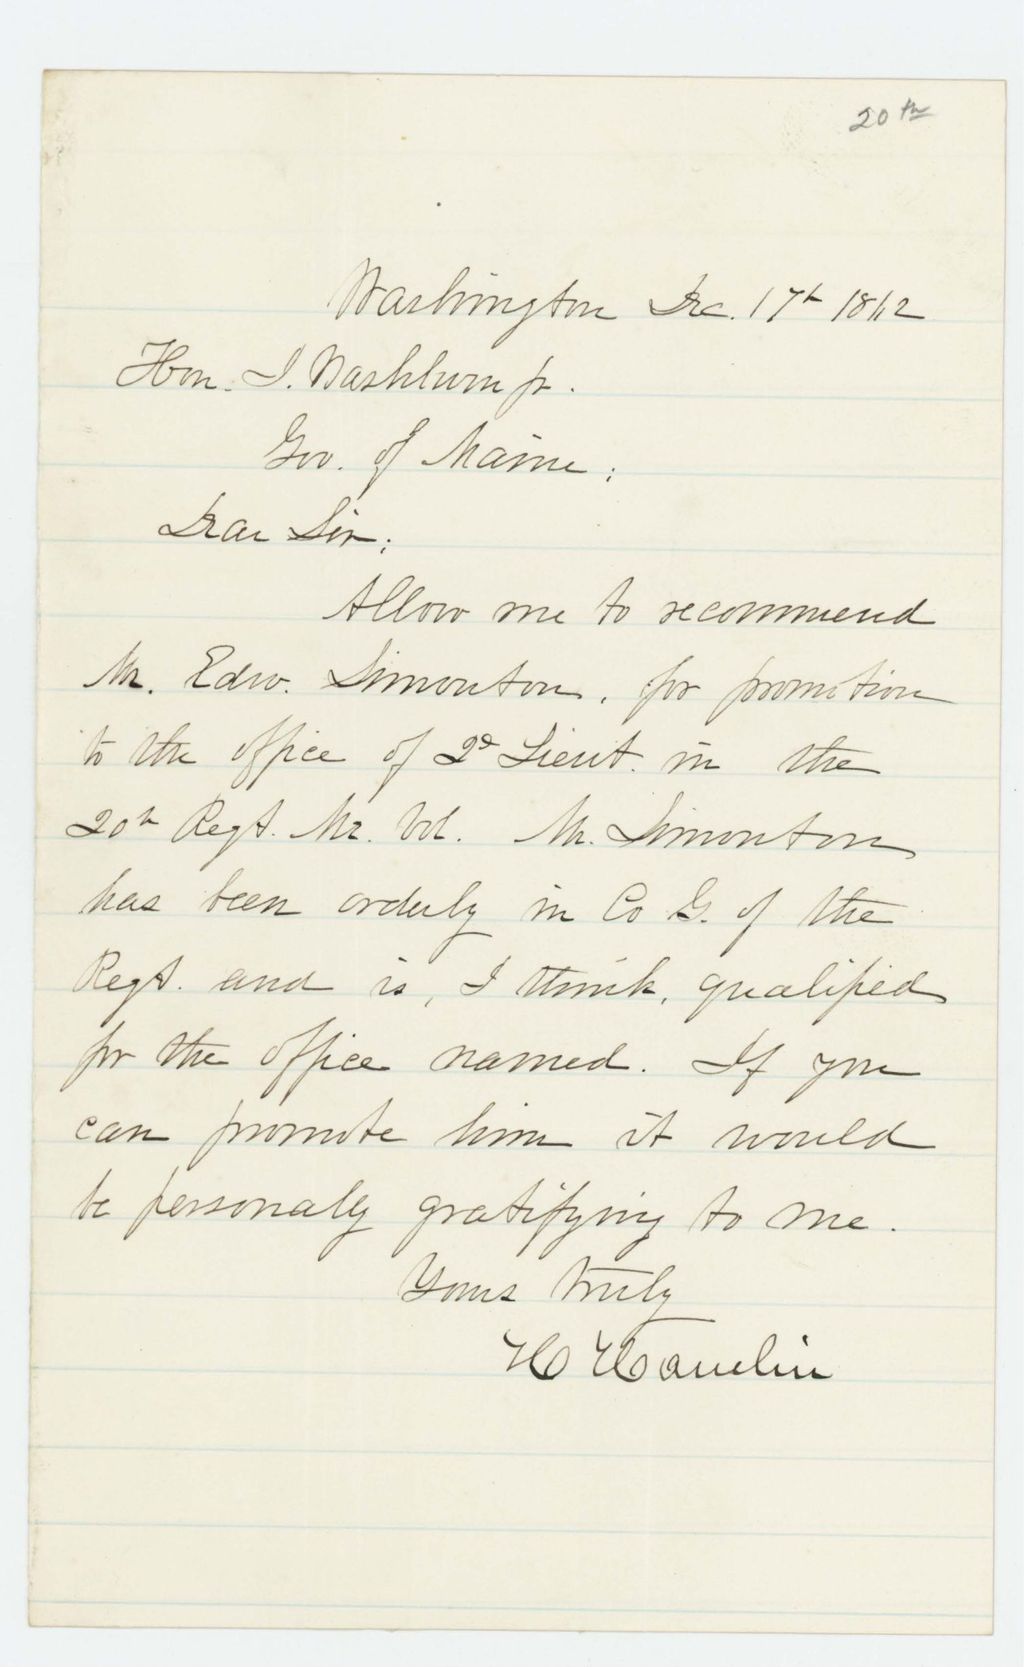 20th
Washington Dec. 17th 1862
Hon. I. Washburn jr.
Gov. of Maine;
Dear Sir;
Allow me to recommend
Mr. Edw. Simonton, for promotion
to the office of 2d Lieut. in the
20th Regt. Me. Vol. Mr. Simonton
has been orderly in Co G. of the
Regt. and is, I think, qualified
for the office named. If you
can promote him it would
be personaly gratifying to me.
Yours truly
H Hamlin